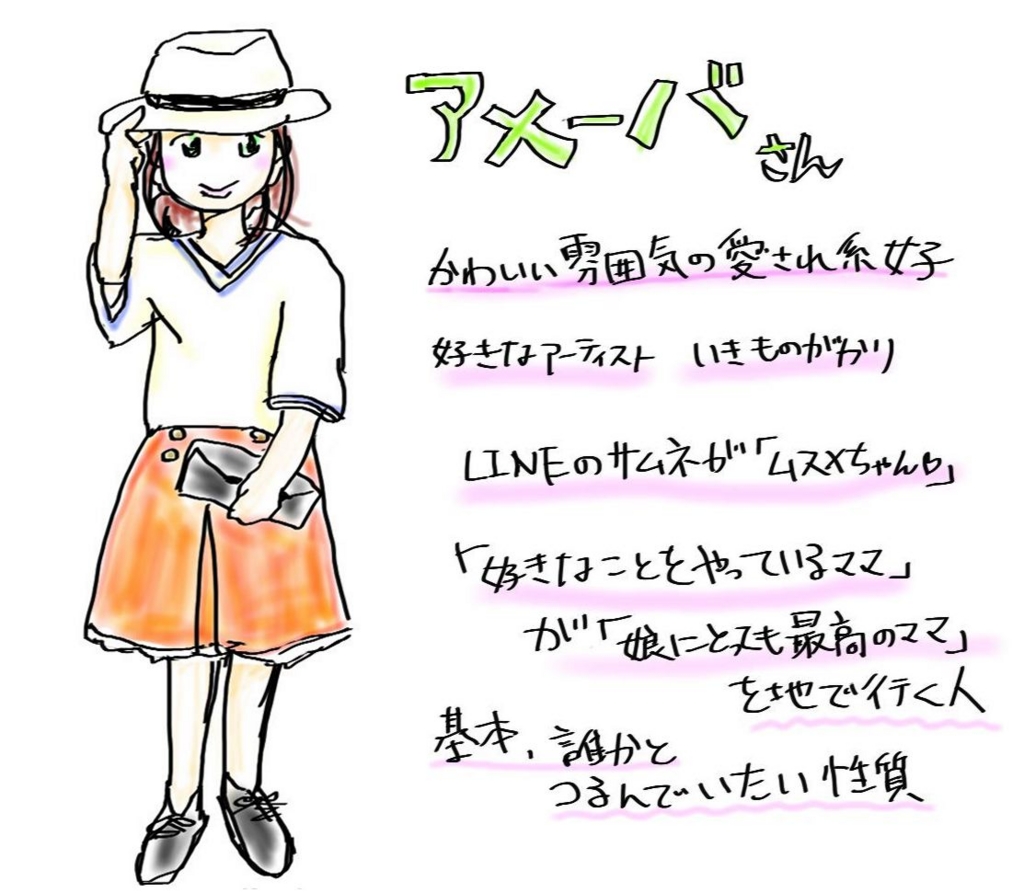 アメーバさん
かわいい雰囲気の愛され系女子
好きなアーティスト いきものがかり
LINEのサムネが「ムスメちゃん♡」
「好きなことをやっているママ」
が「娘にとっても最高のママ」
を地で行く人
基本、誰かと
つるんでいたい性質